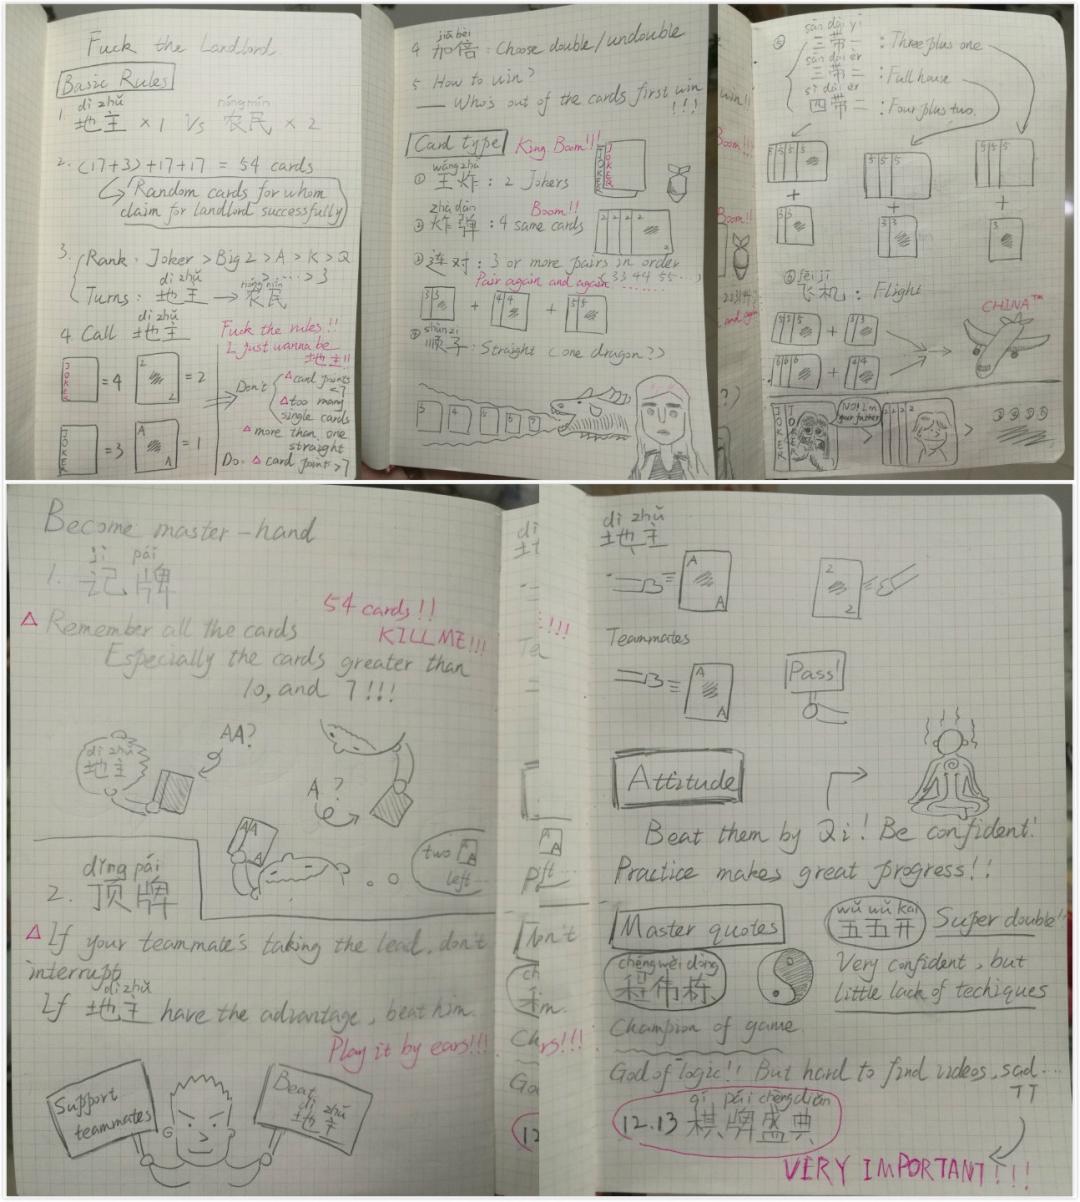 Fuck the Landlord
Basic Rules
dì zhǔ nóng mín
1. 地主 ×1 Vs 农民 ×2
2. (17+3)+17+17 = 54 cards
Random cards for whom
claim for landlord successfully
3. Rank: Joker > Big 2 > A > K > Q
> ...... > 3
dì zhǔ nóng mín
Turns: 地主 → 农民
dì zhǔ
4 Call 地主
JOKER = 4 2 2 = 2
JOKER = 3 A A = 1
Fuck the rules!!
I just wanna be
地主!!
Don't
△ card points
< 7
△ too many
single cards
△ more than one
straight
Do: △ card point > 7
jiā bèi
4 加倍: Choose double/undouble
5 How to win?
— Who's out of the cards first win
!!!
Card type
King Boom!!!
wáng zhà
① 王炸: 2 Jokers
JOKER JOKER
zhà dàn
Boom!!
② 炸弹: 4 same cards
2 2 2 2 2
③ 连对: 3 or more pairs in order
Pair again and again 33 44 55...
3 3 + 4 4 + 5 5
shùn zi
顺子: Straight (one dragon?)
3 4 5 6 7
sān dài yī
⑤ 三带一: Three plus one
sān dài èr
三带二: Full house
sì dài èr
四带二: Four plus two.
5 5 5 5
+
3 3
5 5 5
+
3 3
5 5 5
+
3
fēi jī
⑥ 飞机: Flight
5 5 5 + 3 3
6 6 6 + 4 4
CHINA™
JOKER JOKER
NO! I'm
your father
> 2 2 2 2 >
Become master-hand
jì pái
1. 记牌
54 cards!!
KILL ME!!!
△ Remember all the cards
Especially the cards greater than
10, and 7!!!
dì zhǔ
地主
AA?
A?
A A A
two A A
left...
dǐng pái
2. 顶牌
△ If your teammate's taking the lead, don't
interrupt
dì zhǔ
If 地主 have the advantage, beat him.
Play it by ears!!!
Support
teammates
Beat
dì zhǔ
地主
dì zhǔ
地主
A A
2 2
Teammates
A A
Pass!
Attitude
Beat them by Qi! Be confident!
Practice makes great progress!!
Master quotes
wǔ wǔ kāi
五五开
Super double!!
chéng wěi dòng
程伟栋
Very confident, but
little lack of techiques
Champion of game
God of logic!! But hard to find videos, sad...
TT
qí pái chéng diǎn
12.13 棋牌盛典
VERY IMPORTANT!!!